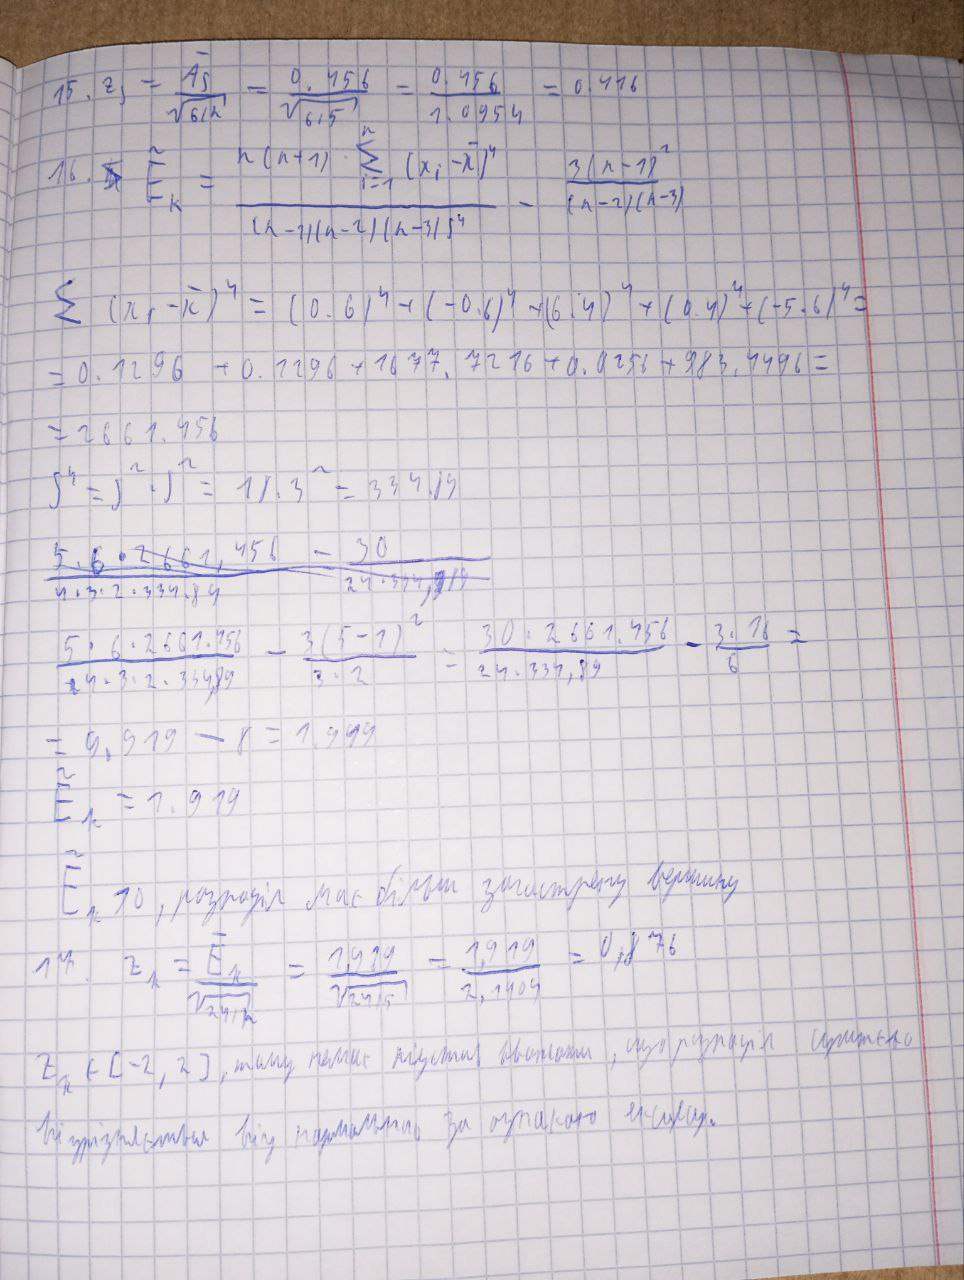 15. z_s = As/√(6/n) = 0.456/√(6/5) = 0.456/1.0954 = 0.416
16. Ẽ_k = n(n+1)·Σ_{i=1}^{n}(x_i-x̄)^4/((n-1)(n-2)(n-3)S^4) - 3(n-1)^2/((n-2)(n-3))
Σ(x_i-x̄)^4 = (0.6)^4+(-0.6)^4+(6.4)^4+(0.4)^4+(-5.6)^4=
=0.1296+0.1296+1677.7216+0.0256+983.4496=
=2661.456
S^4=S^2·S^2=18.3^2=334.89
5·6·2661,456/4·3·2·334.89 - 30
5·6·2661.456/4·3·2·334,89 - 3(5-1)^2/3·2 = 30·2661.456/24·334,89 - 3·16/6 =
=9.919-8=1.919
Ẽ_k=1.919
Ẽ_k>0, розподіл має більш загострену вершину
17. z_k = Ẽ_k/√(24/n) = 1,919/√(24/5) = 1,919/2,1909 = 0,876
z_k∈[-2,2], тому немає підстав вважати, що розподіл суттєво
відрізняється від нормального за ознакою ексцесу.